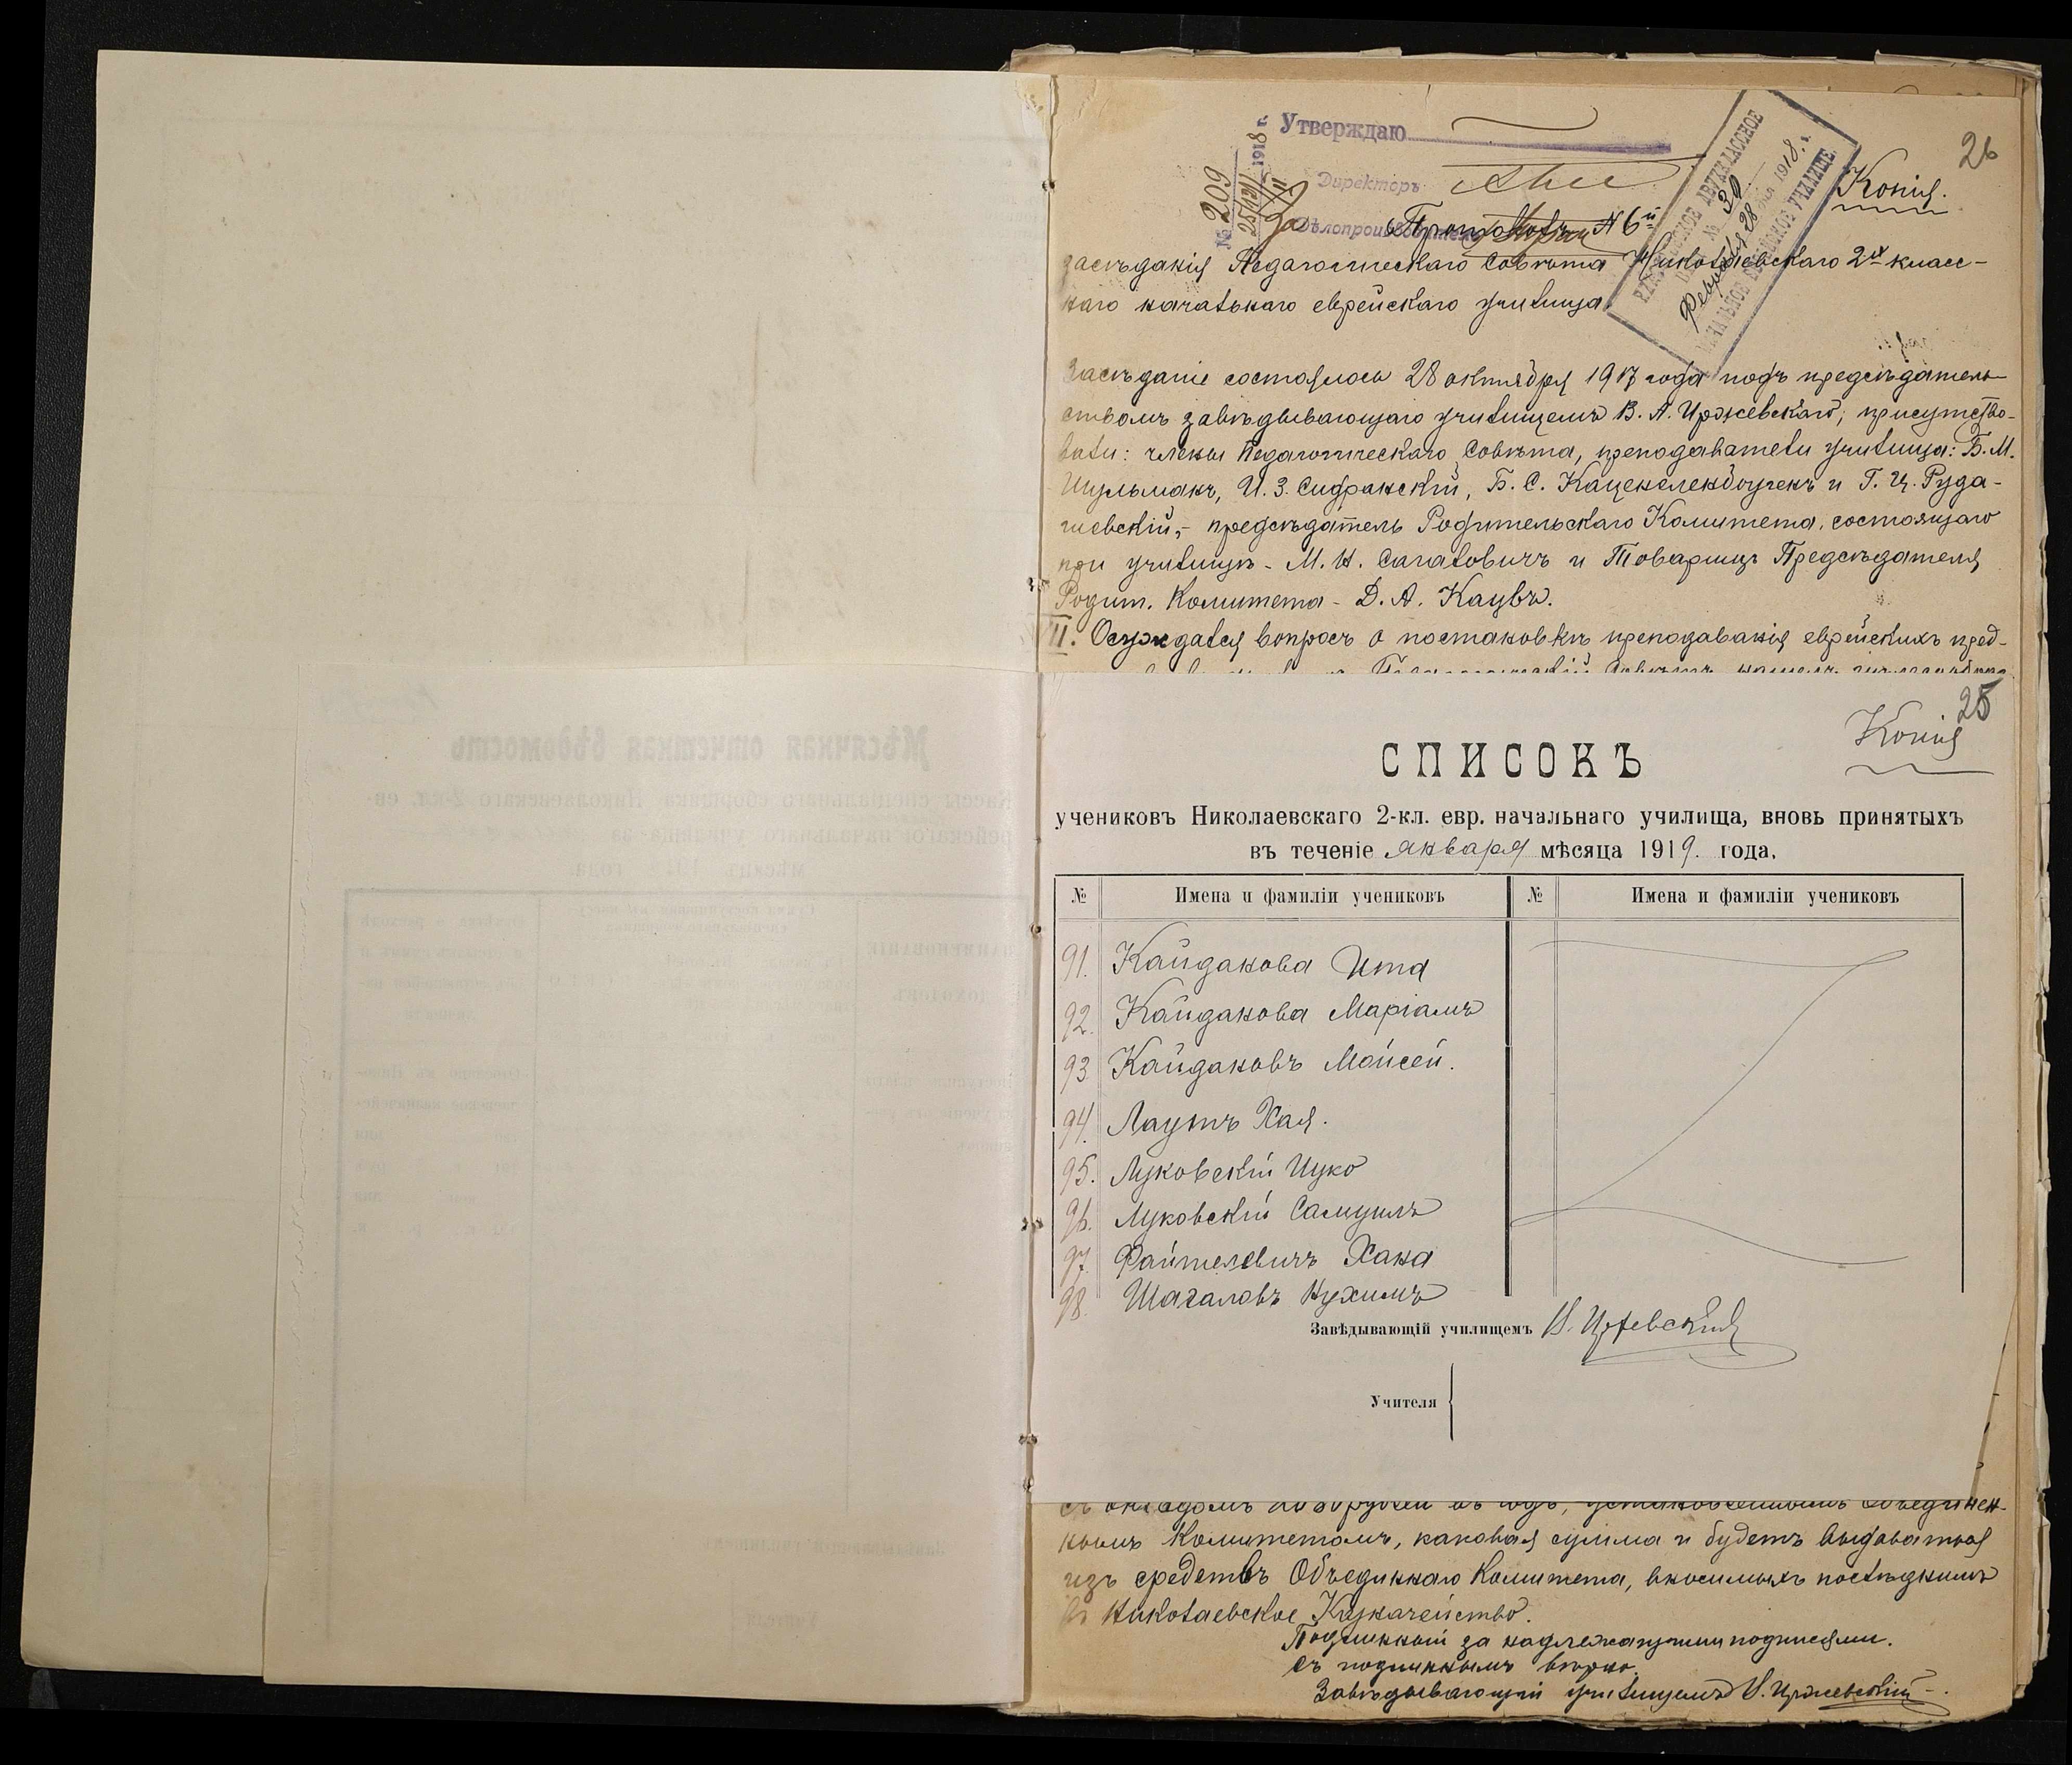 26
Утверждаю
№ 209
25/(12)/II 1918 г.
Директоръ
Копія.
Протоколъ № 6й
засѣданія Педагогическаго Совѣта Николаевскаго 2х класс-
наго начальнаго еврейскаго училища.
РУЖИНСКОЕ ДВУХКЛАССНОЕ
№ 30
Февраля 28 дня 1918 г.
НАЧАЛЬНОЕ ЕВРЕЙСКОЕ УЧИЛИЩЕ
Засѣданіе состоялось 28 октября 1917 года подъ предсѣдатель-
ствомъ завѣдывающаго училищемъ В. А. Иржевскаго; присутство-
вали: члены Педагогическаго Совѣта, преподаватели училища: Б. М.
Шульманъ, И. З. Сифранскій, Б. С. Каценеленбоугенъ и Г. Ц. Руда-
шевскій, - предсѣдатель Родительскаго Комитета, состоящаго
при училищѣ - М. Н. Сагаловичъ и Товарищъ Предсѣдателя
Родит. Комитета - Д. А. Кацвъ.
II. Осуждался вопросъ о постановкѣ преподаванія еврейскихъ пред-
25
Копія
СПИСОКЪ
учениковъ Николаевскаго 2-кл. евр. начальнаго училища, вновь принятыхъ
въ теченіе января мѣсяца 1919. года.
№ Имена и фамиліи учениковъ № Имена и фамиліи учениковъ
91. Кайданова Ита
92. Кайданова Маріамъ
93 Кайдановъ Мойсей.
94. Лаутъ Хая.
95. Луковскій Ицко
96. Луковскій Самуилъ
97. Файтелевичъ Хана
98. Шагаловъ Нухимъ
Завѣдывающій училищемъ В. Иржевскій
Учителя
съ окладомъ по 30 рублей въ годъ, установленнымъ Объединен-
нымъ Комитетомъ, каковая сумма и будетъ выдаваться
изъ средствъ Объединнаго Комитета, вносимыхъ послѣднимъ
въ Николаевское Казначейство.
Подлинный за надлежащими подписями.
Съ подлиннымъ вѣрно.
Завѣдывающій училищемъ В. Иржевскій